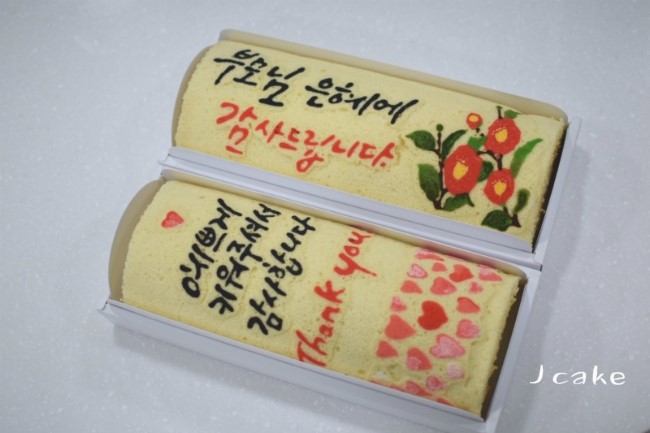 부모님 은혜에
감사드립니다.
예쁘게
키워주셔서
감사합니다
Thank you
Jcake